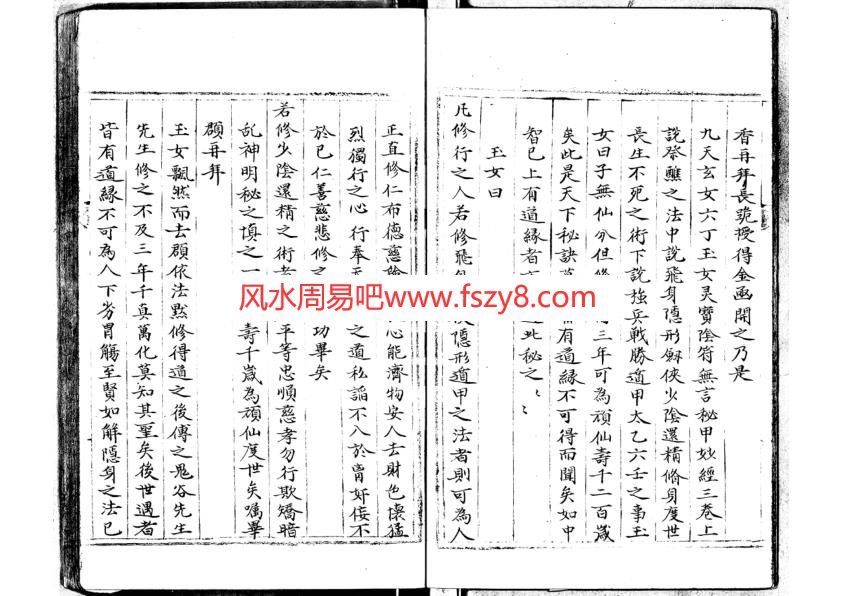 香再拜長跪授得金函開之乃是
九天玄女六丁玉女灵寶陰符無言秘甲妙經三卷上
說祭醮之法中說飛身隱形劍俠少陰還精脩身度世
長生不死之術下說強兵戰勝遁甲太乙六壬之事玉
女曰子無仙分但修
三年可為頑仙壽千二百歲
矣此是天下秘訣
有道緣不可得而聞矣如中
智已上有道緣者
此秘之
玉女曰
凡修行之人若修飛
隱形遁甲之法者則可為人
正直修仁布德慈
心能濟物安人去財色懷猛
烈獨行之心行奉
之道私謟不入於胷奸佞不
於已仁善慈悲修之
功畢矣
若修少陰還精之術
平等忠順慈孝勿行欺矯暗
乱神明秘之慎之一
壽千歲為頑仙度世矣嘱畢
顏再拜
玉女飄然而去顏依法默修得道之後傳之鬼谷先生
先生修之不及三年千真萬化莫知其聖矣後世遇者
皆有道緣不可為人下劣胃觴至賢如解隱身之法已
风水周易吧www.fszy8.com